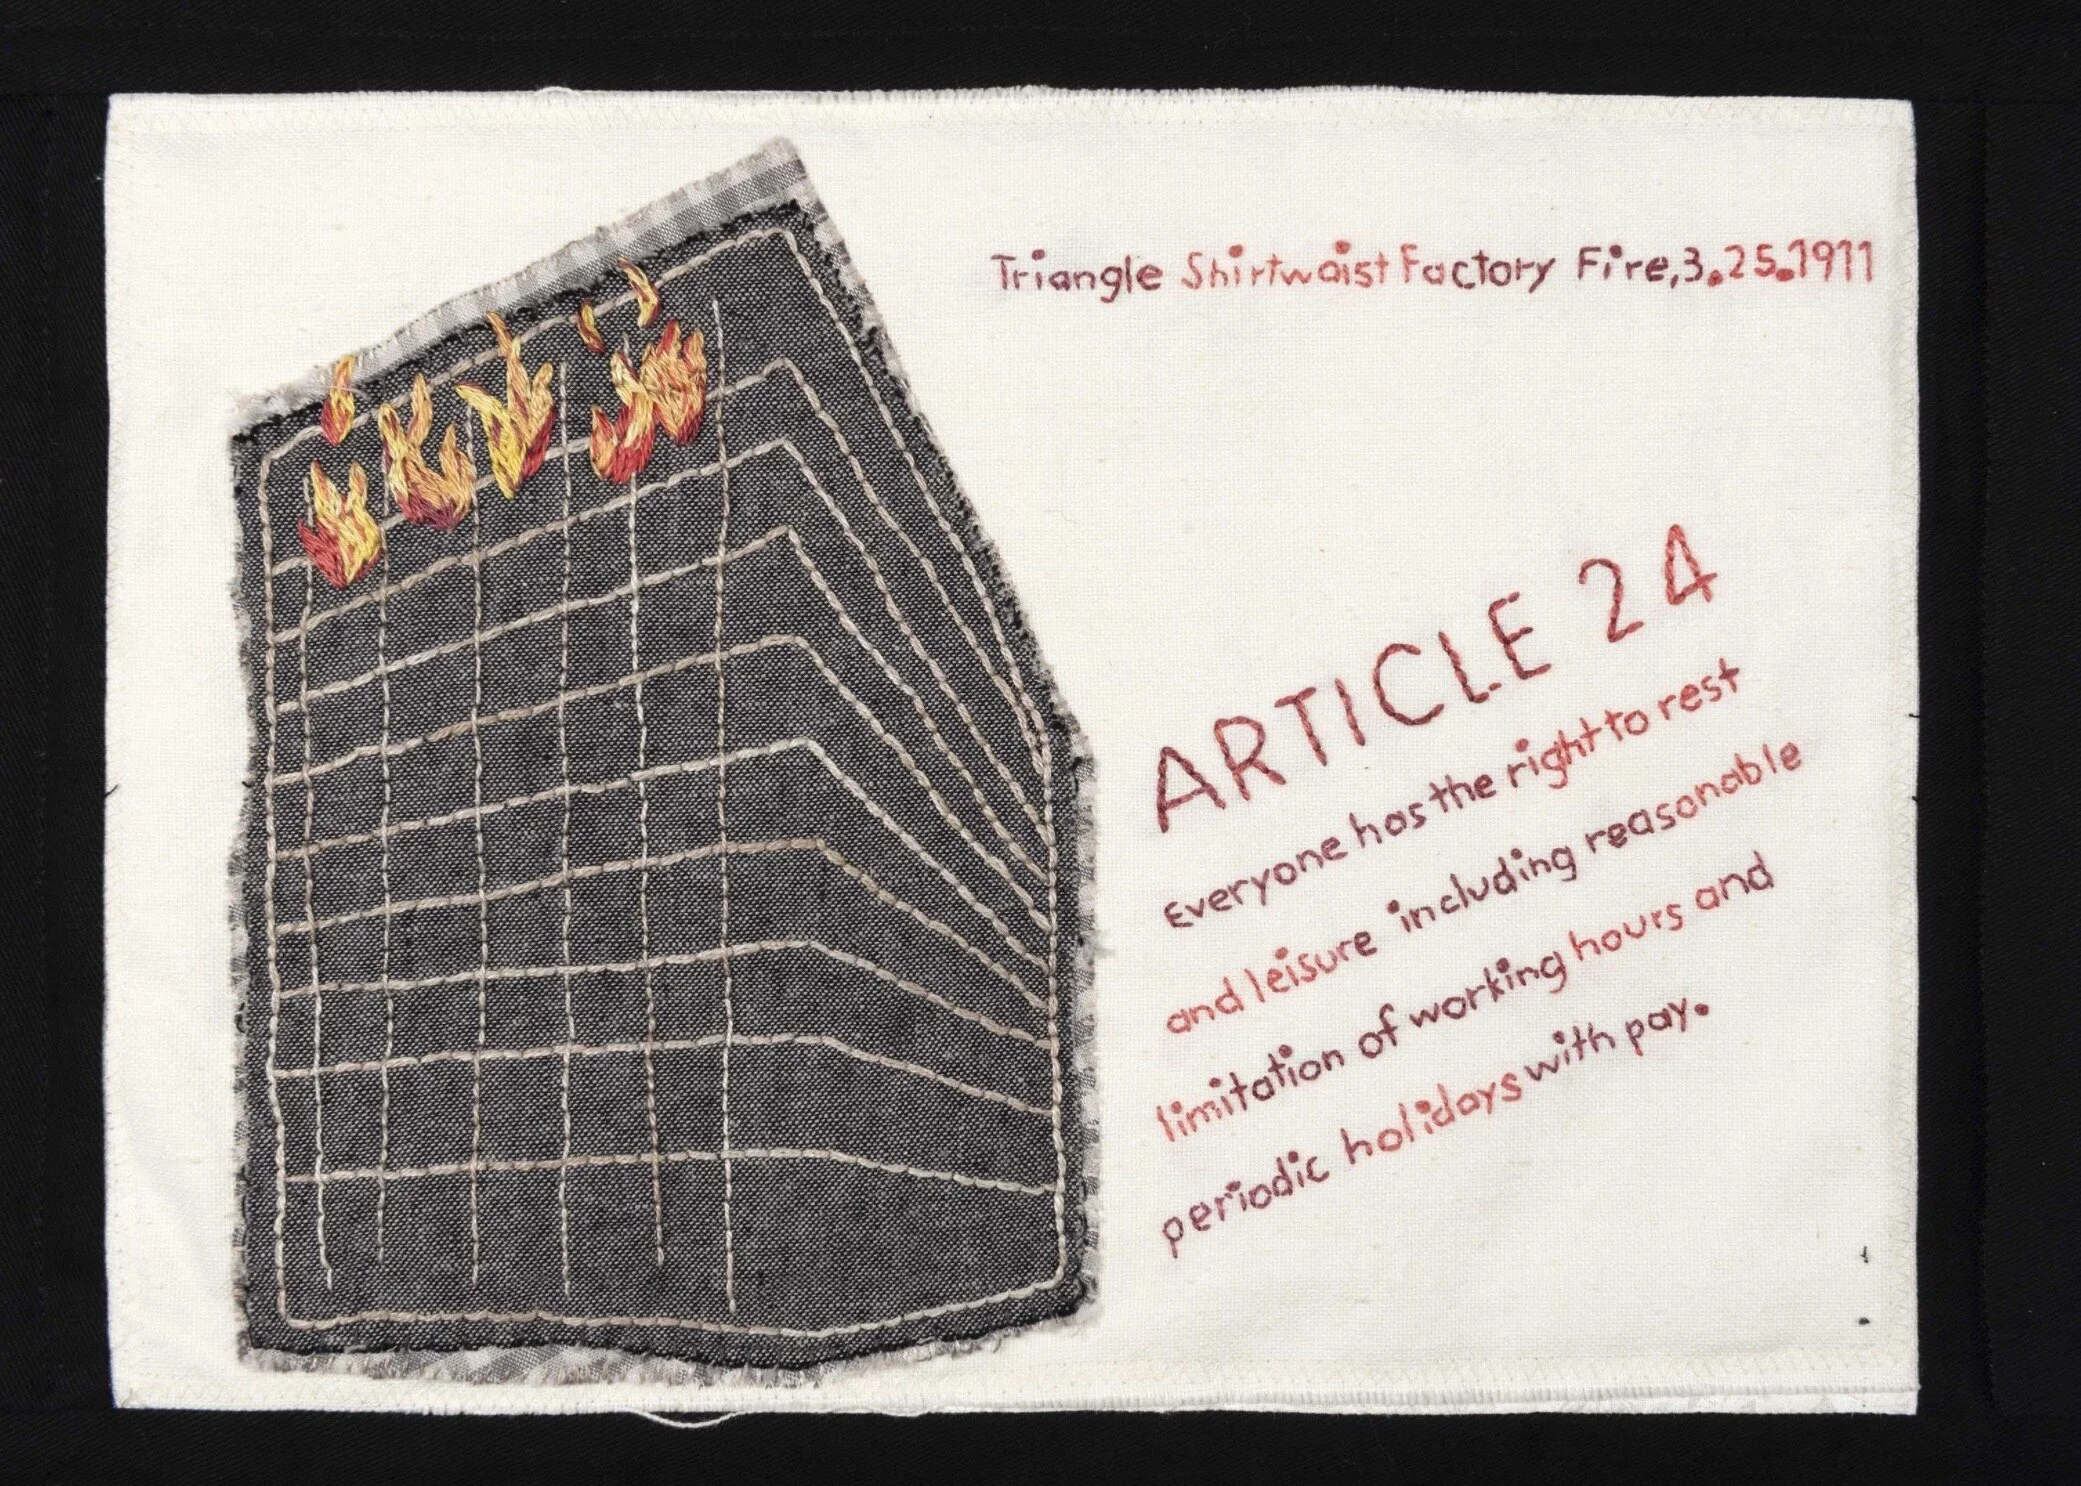 Triangle Shirtwaist Factory Fire, 3.25.1911
ARTICLE 24
Everyone has the right to rest
and leisure including reasonable
limitation of working hours and
periodic holidays with pay.